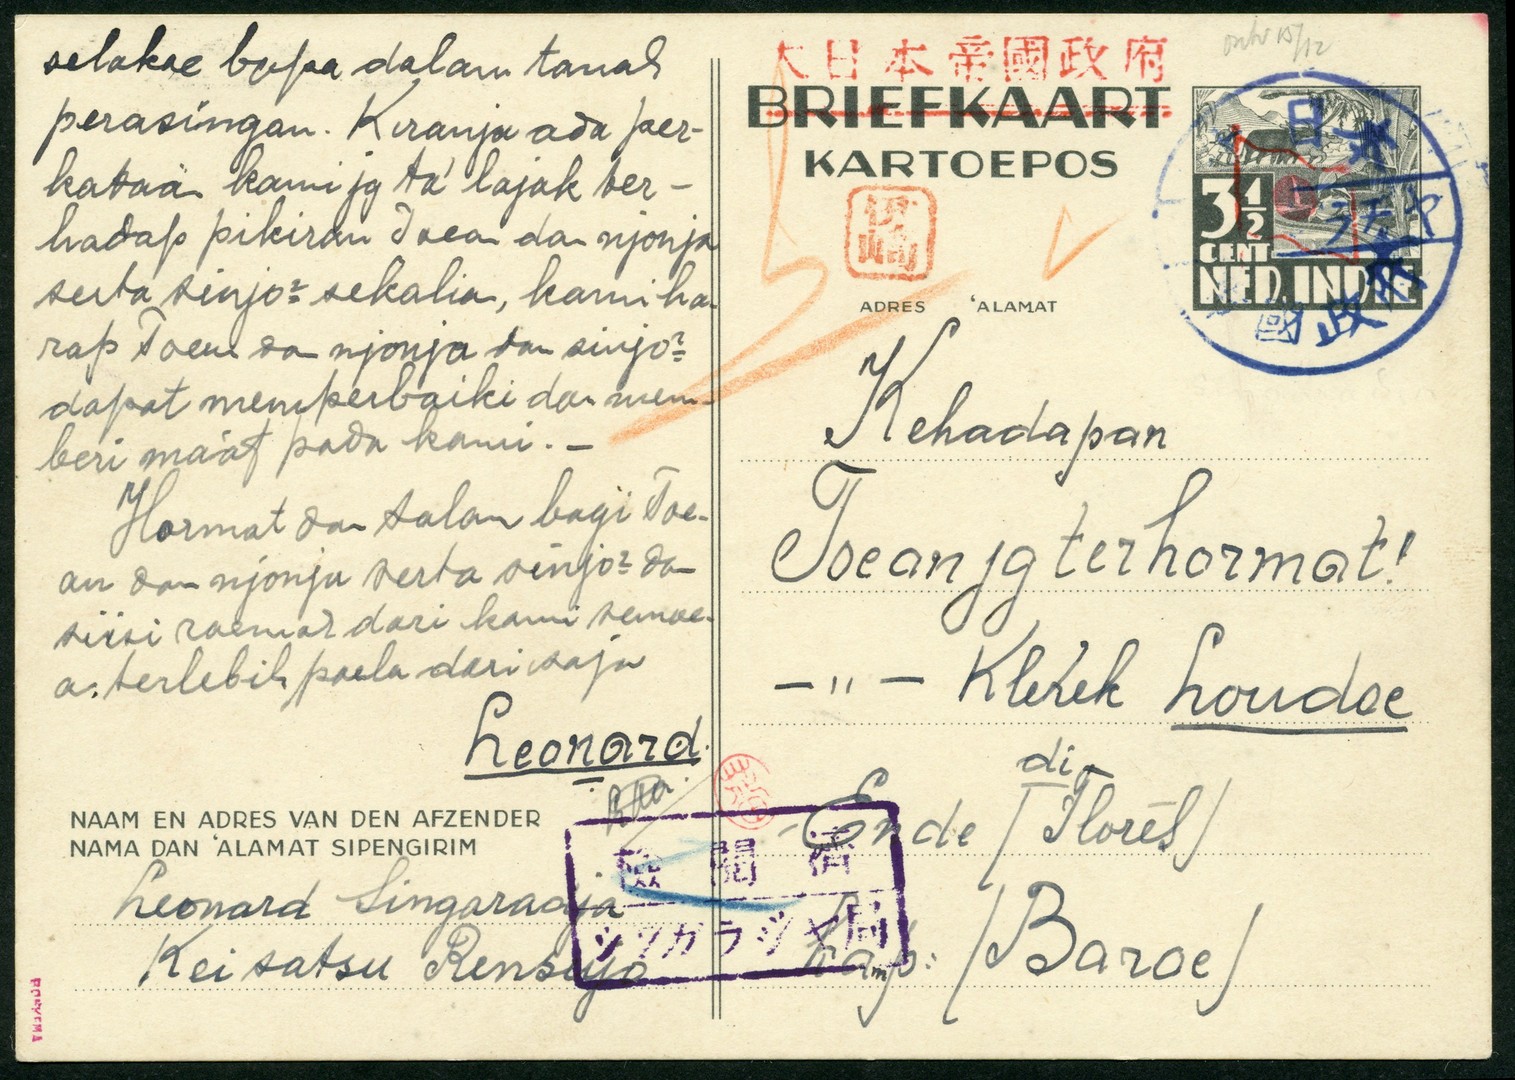 selakoe bapa dalam tanah
perasingan. Kiranja ada per-
kataän kami jg ta' lajak ter-
hadap pikiran Toean dan njonja
serta sinjo² sekalian, kami ha-
rap Toean dan njonja dan sinjo²
dapat memperbaiki dan mem-
beri ma'af pada kami. —
Hormat dan salam bagi Toe-
an dan njonja serta sinjo² dan
siisi roemah dari kami semoe-
a. terlebih poela dari saja
Leonard.
NAAM EN ADRES VAN DEN AFZENDER
NAMA DAN 'ALAMAT SIPENGIRIM
Leonard Singaradja
Keisatsu Rensujo
大日本帝國政府
BRIEFKAART
KARTOEPOS
ADRES 'ALAMAT
3½
CENT
NED. INDIE
Kehadapan
Toean jg terhormat!
— " — Klerek Loudoe
di
Ende (Flores)
Kamp: (Baroe)
檢閲済
シンガラジヤ局